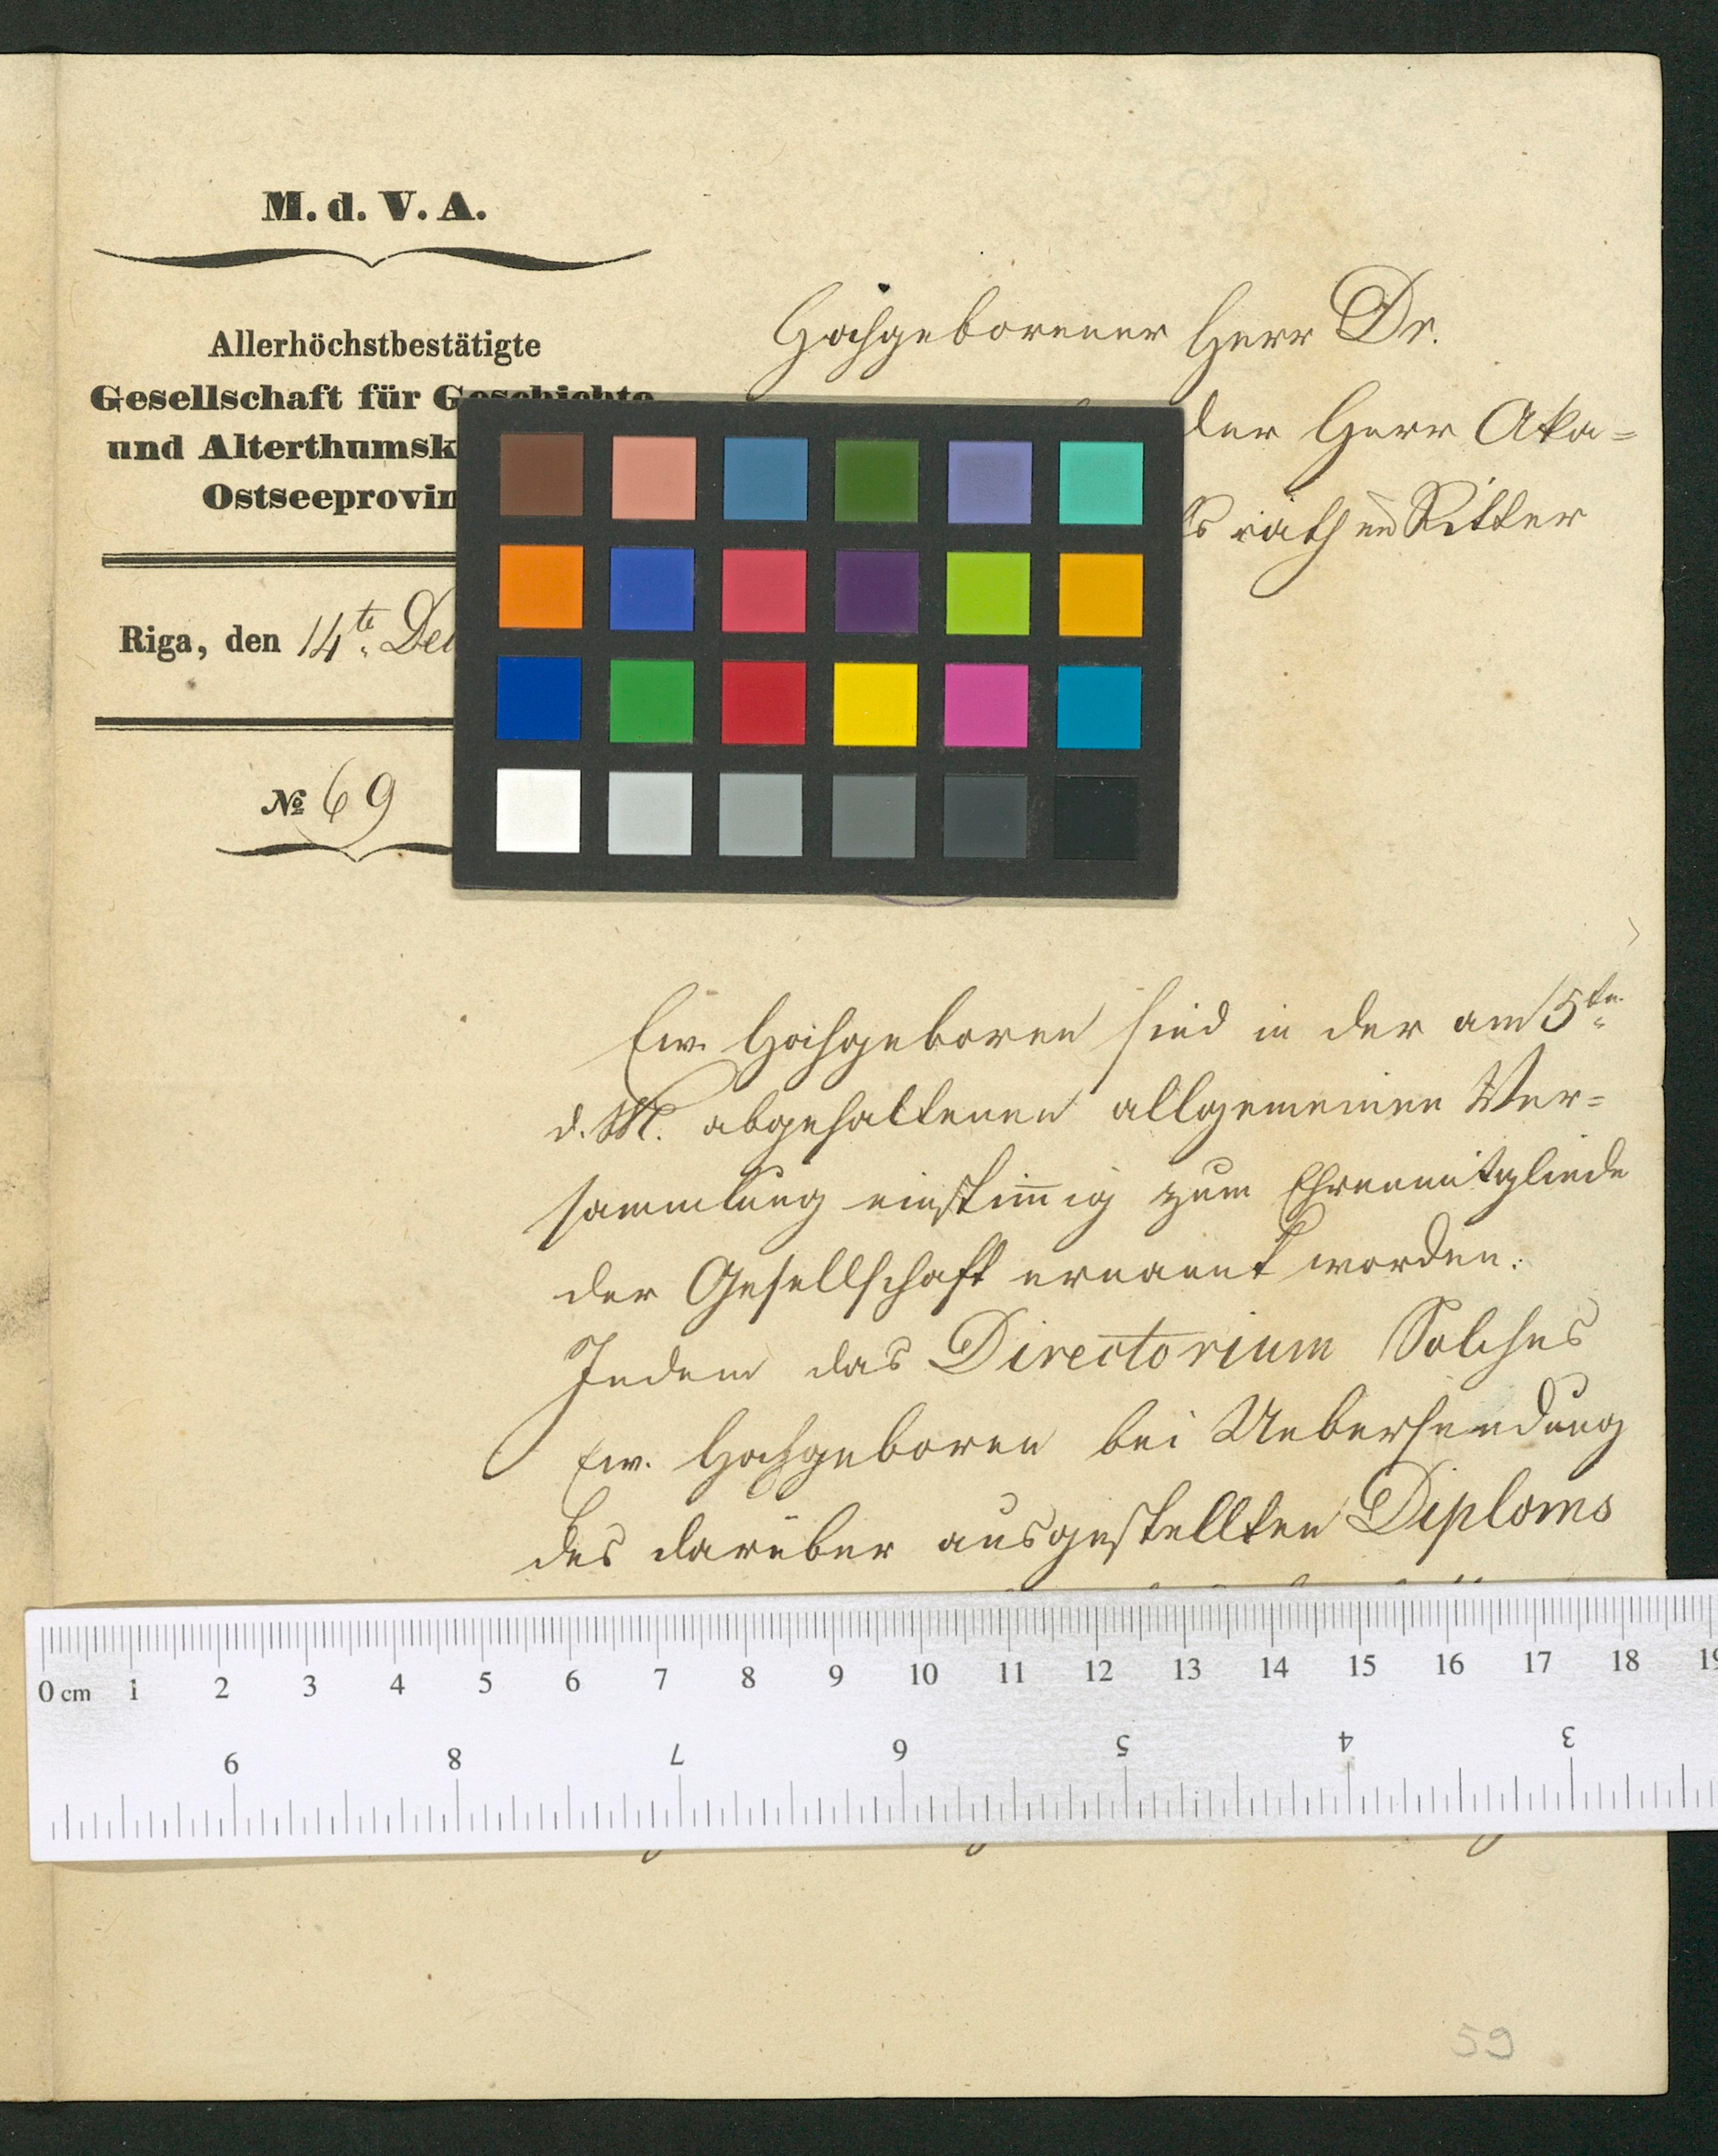 M. d. V. A.
Allerhöchstbestätigte
Gesellschaft für Geschichte
und Alterthumsk
Ostseeprovin
Riga, den 14te De
№ 69
Hochgeborener Herr Dr.
der Herr Aka-
rath und Ritter
Ew. Hochgeboren sind in der am 5ten
d. M. abgehaltenen allgemeinen Ver-
sammlung einstim̄ig zum Ehrenmitgliede
der Gesellschaft ernannt worden.
Indem das Directorium Solches
Ew. Hochgeboren bei Uebersendung
des darüber ausgestellten Diploms
0 cm 1 2 3 4 5 6 7 8 9 10 11 12 13 14 15 16 17 18 19
9 8 7 6 5 4 3
59